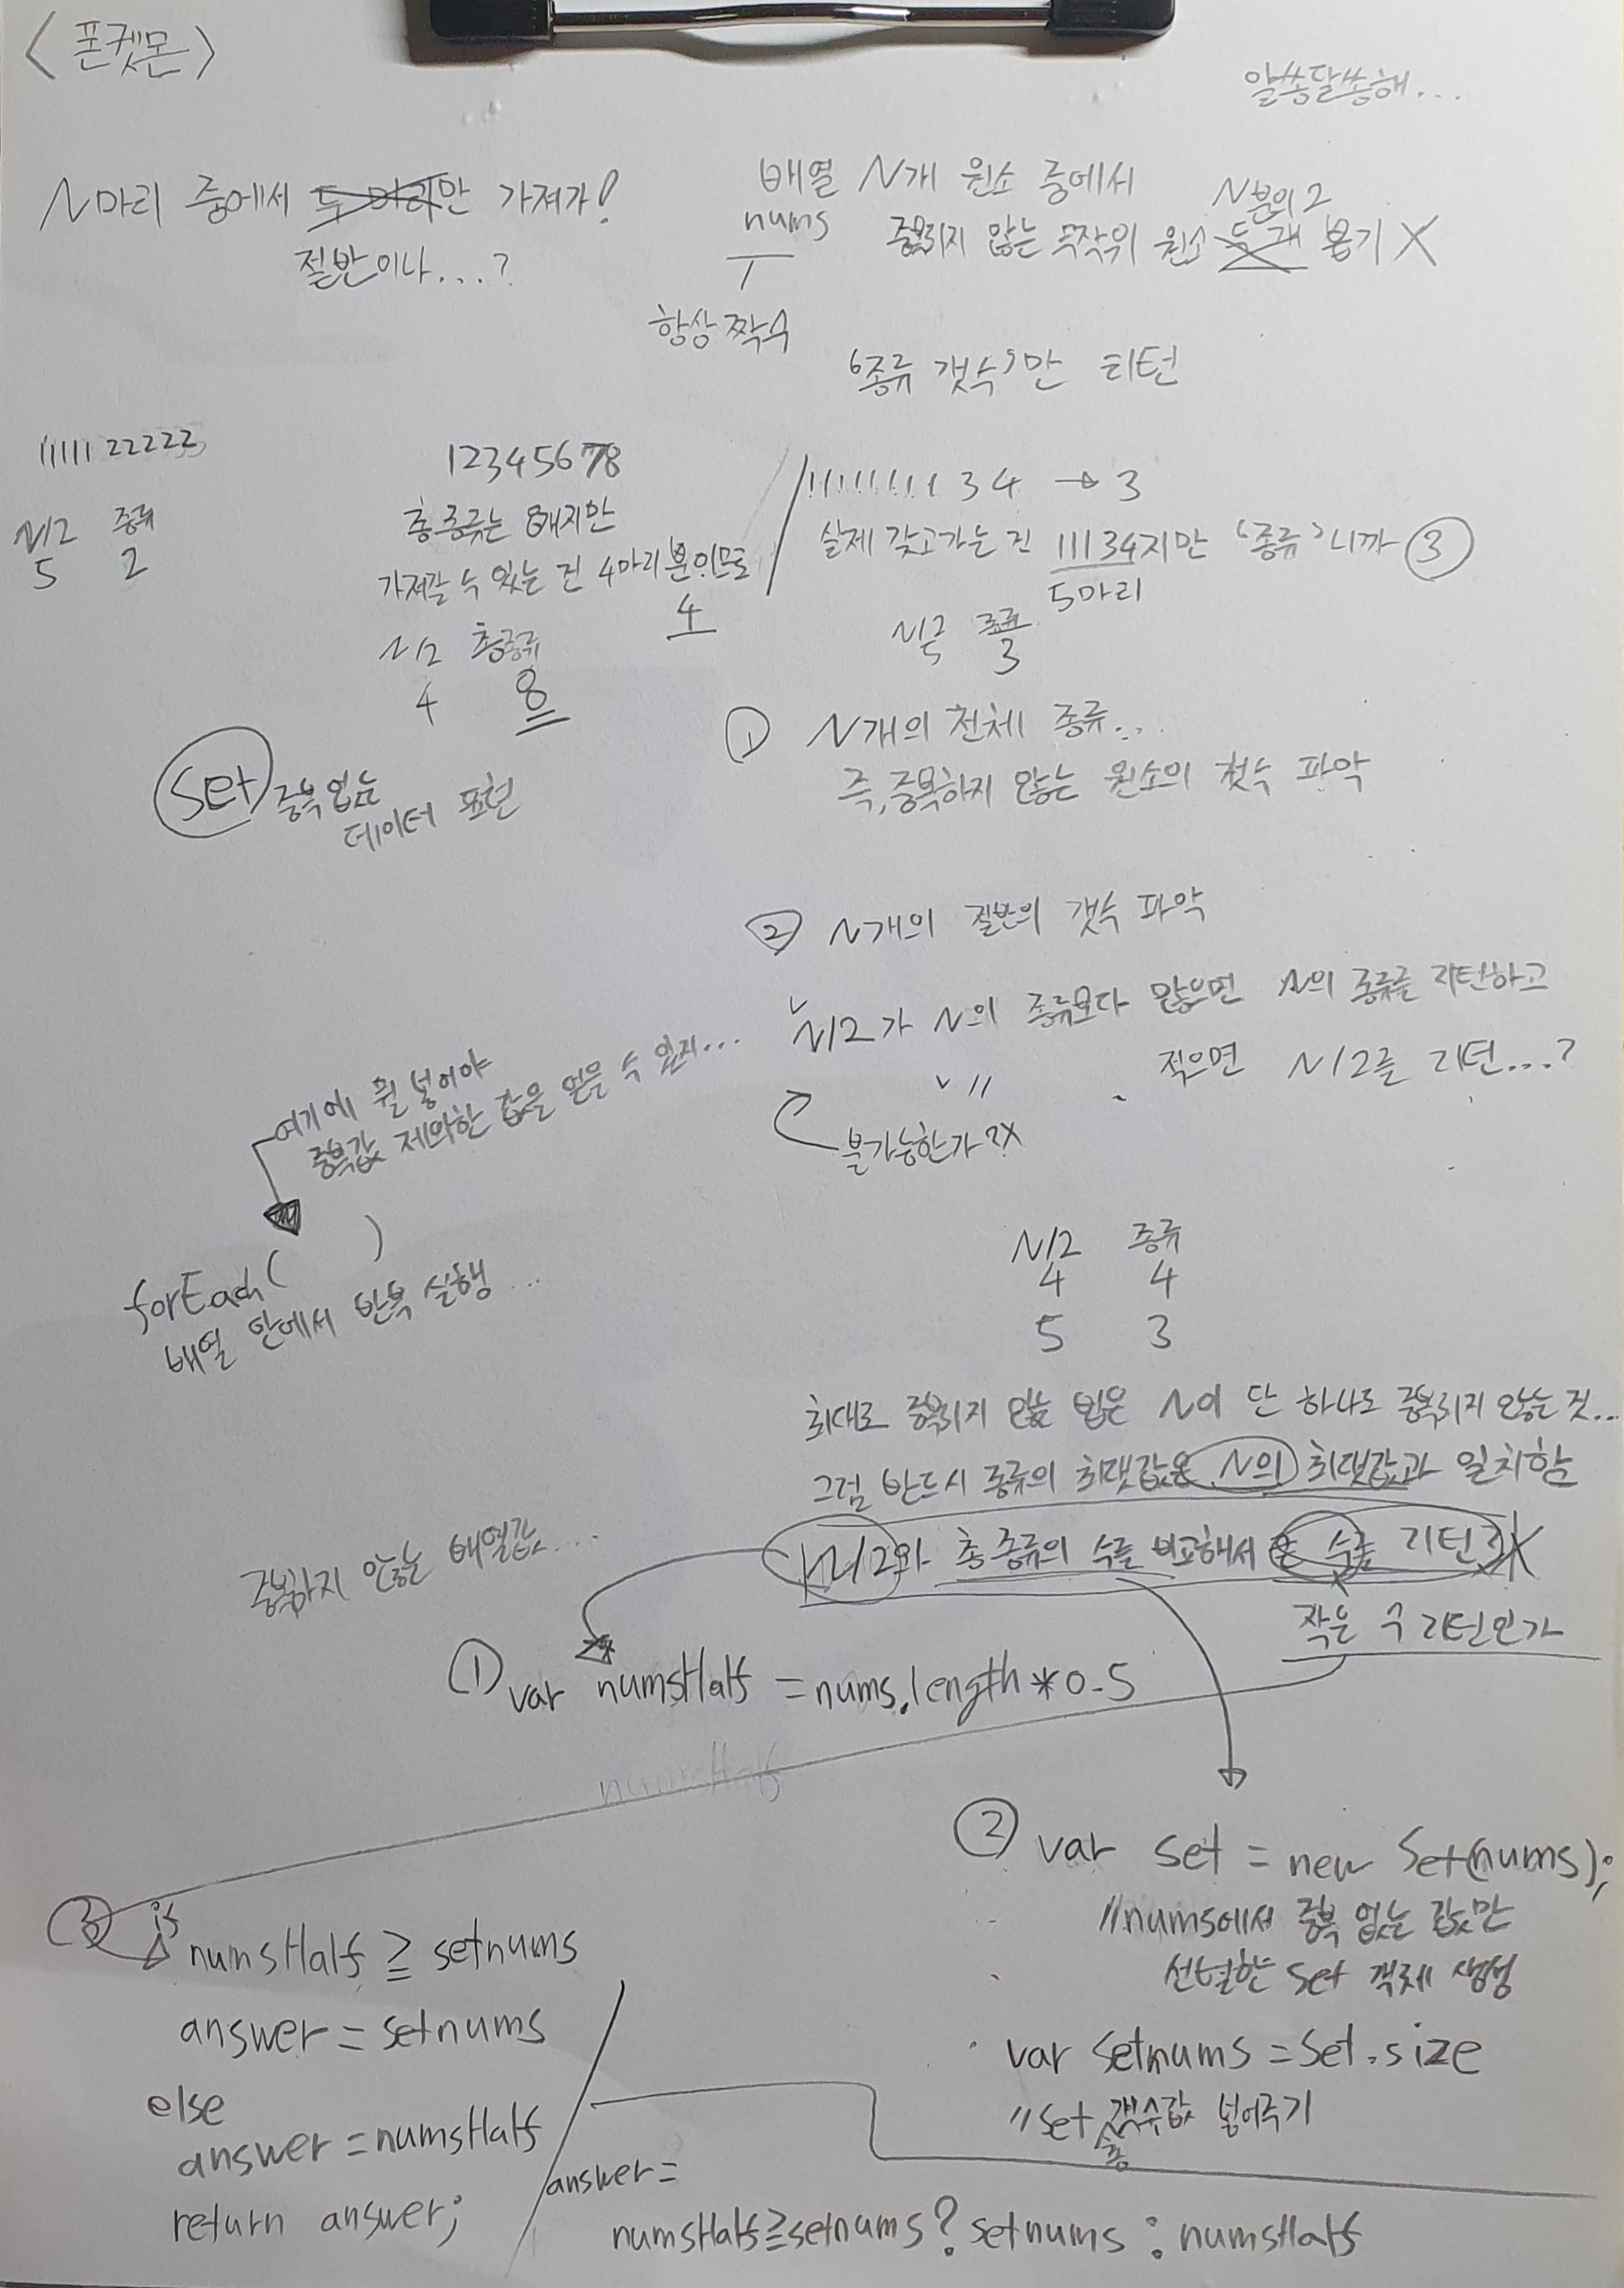 <폰켓몬>
알쏭달쏭해...
N마리 중에서 두 마리만 가져가!
절반이나...?
배열 N개 원소 중에서
nums
N분의 2
중복되지 않는 무작위 원소 두 개 뽑기 X
항상 짝수
'종류 갯수'만 리턴
11111 22222
N/2 종류
5 2
12345678
총 종류는 8개지만
가져갈 수 있는 건 4마리분이므로
4
N/2 총종류
4 8
111111111 3 4 → 3
실제 갖고가는 건 11134지만 '종류'니까 ③
5마리
N/2 종류
5 3
set 중복 없는
데이터 표현
① N개의 전체 종류...
즉, 중복하지 않는 원소의 갯수 파악
② N개의 절반의 갯수 파악
N/2가 N의 종류보다 많으면 N의 종류를 리턴하고
〃 적으면 N/2를 리턴...?
불가능한가?X
여기에 뭘 넣어야
중복값 제외한 값을 얻을 수 있지...
forEach( )
배열 안에서 반복 실행...
N/2 종류
4 4
5 3
최대로 중복되지 않는 법은 N이 단 하나도 중복되지 않는 것...
그럼 반드시 종류의 최댓값은 N의 최댓값과 일치함
N/2와 총 종류의 수를 비교해서 큰 수를 리턴?X
작은 수 리턴인가
중복하지 않는 배열값....
① var numsHalf = nums.length*0.5
numsHalf
② var set = new Set(nums);
//nums에서 중복 없는 값만
선별한 set 객체 생성
var setnums = set.size
//set 총 갯수값 넣어주기
③ if
numsHalf ≥ setnums
answer = setnums
else
answer = numsHalf
return answer;
answer =
numsHalf≥setnums? setnums : numsHalf